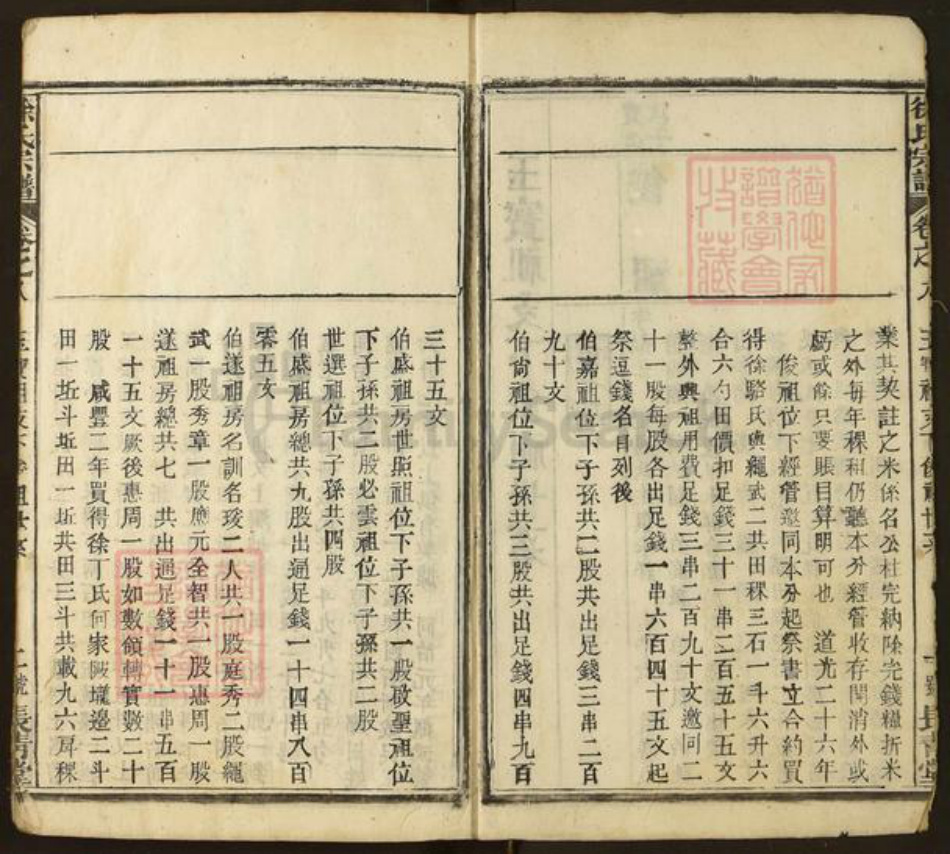 徐氏宗譜
卷之八
業其契註之米係名公柱完納除完錢糧折米
之外每年稞租仍聽本分經管收存閑消外或
虧或餘只要賬目算明可也 道光二十六年
俊祖位下經管邀同本分起祭書立合約買
得徐駱氏與繩武二共田稞三石一斗六升六
合六勺田價扣足錢三十一串二百五十五文
整外與祖用費足錢三串二百九十文邀同二
十一股每股各出足錢一串六百四十五文起
祭逗錢名目列後
伯嘉祖位下子孫共二股共出足錢三串二百
九十文
伯尚祖位下子孫共三股共出足錢四串九百
三十五文
伯盛祖房世照祖位下子孫共一股啟聖祖位
下子孫共二股必雲祖位下子孫共二股
世選祖位下子孫共四股
伯盛祖房總共九股出通足錢一十四串八百
零五文
伯遂祖房名訓名琰二人共一股庭秀二股繩
武一股秀章一股應元全智共一股惠周一股
遂祖房總共七 共出通足錢一十一串五百
一十五文厥後惠周一股如數領轉實數二十
股 咸豐二年買得徐丁氏何家陂壠邊二斗
田一坵斗坵田一坵共田三斗共載九六斛稞
徐氏宗譜
卷之八
二號
長青堂